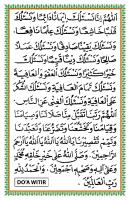 اَللّٰهُمَّ اِنَّا نَسْئَلُكَ اِيْمَانًا دَائِمًا وَنَسْئَلُكَ
قَلْبًا خَاشِعًا وَنَسْئَلُكَ عِلْمًا نَافِعًا
وَنَسْئَلُكَ يَقِيْنًا صَادِقًا وَنَسْئَلُكَ عَمَلًا
صَالِحًا وَنَسْئَلُكَ دِيْنًا قَيِّمًا وَنَسْئَلُكَ
خَيْرًا كَثِيْرًا وَنَسْئَلُكَ الْعَفْوَ وَالْعَافِيَةَ
وَنَسْئَلُكَ تَمَامَ الْعَافِيَةِ وَنَسْئَلُكَ الشُّكْرَ
عَلَى الْعَافِيَةِ وَنَسْئَلُكَ الْغِنٰى عَنِ النَّاسِ
اَللّٰهُمَّ رَبَّنَا تَقَبَّلْ مِنَّا صَلَاتَنَا وَصِيَامَنَا
وَقِيَامَنَا وَتَخَشُّعَنَا وَتَضَرُّعَنَا وَتَعَبُّدَنَا
وَتَمِّمْ تَقْصِيْرَنَا يَا اَللهُ يَا اَللهُ يَا اَرْحَمَ
الرَّاحِمِيْنَ وَصَلَّى اللهُ عَلٰى خَيْرِ خَلْقِهِ مُحَمَّدٍ
وَعَلٰى اٰلِهِ وَصَحْبِهِ اَجْمَعِيْنَ وَالْحَمْدُ لِلّٰهِ
رَبِّ الْعَالَمِيْنَ
DO'A WITIR